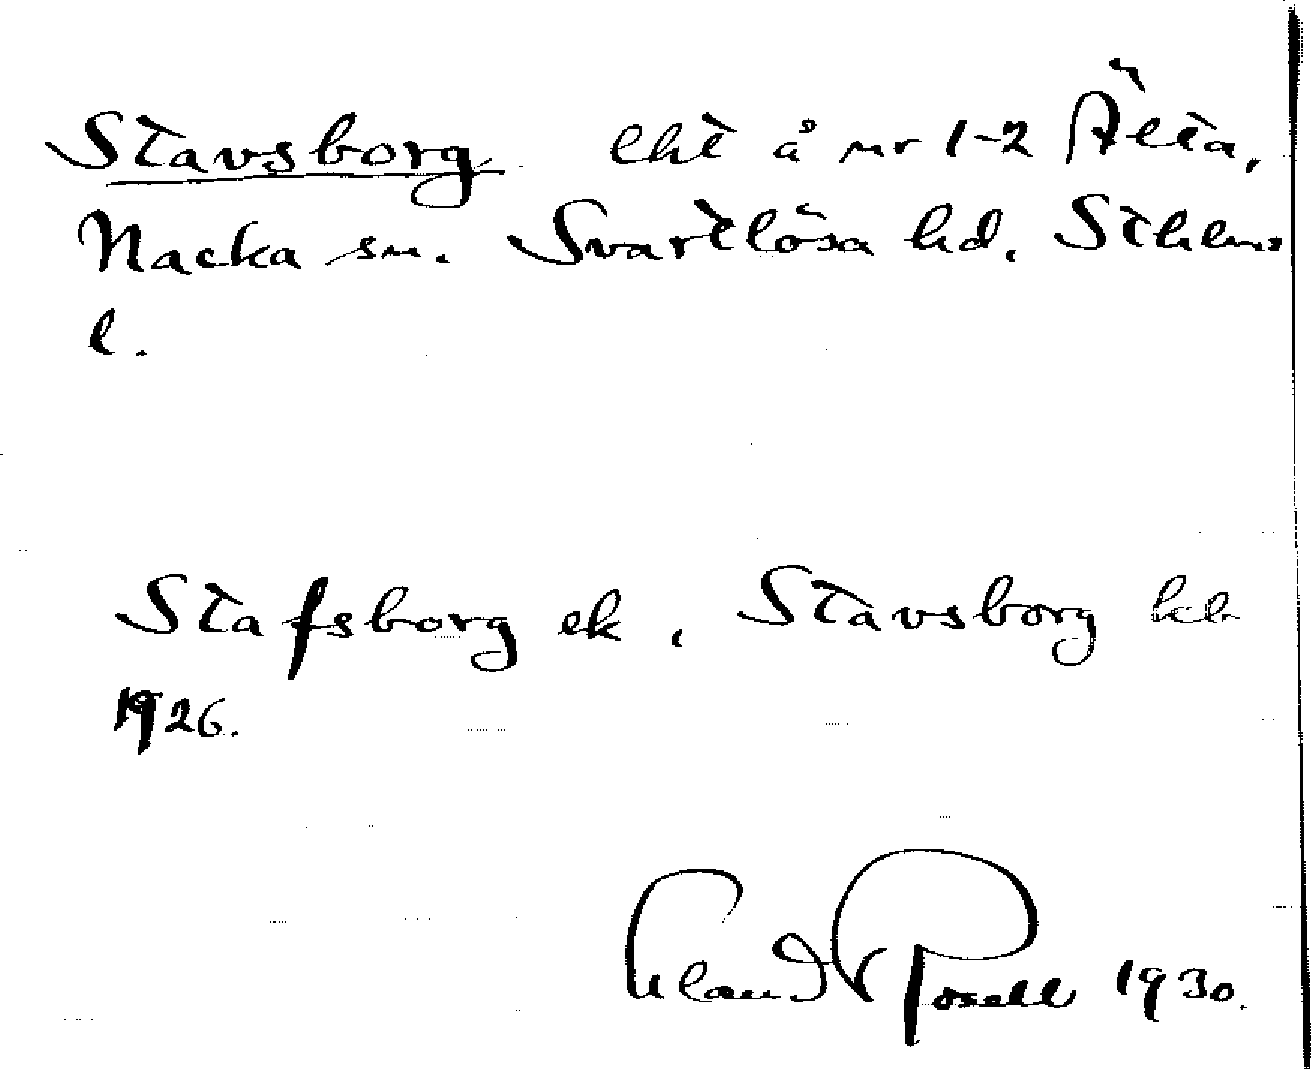 Stavsborg lht å nr 1-2 Älta,
Nacka sn. Svartlösa hd. Sthlms
l.
Stafsborg ek, Stavsborg kb
1926.
Erland Rosell 1930.